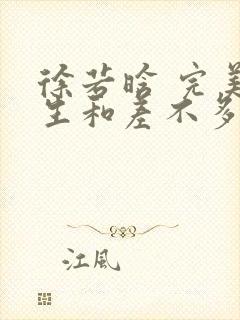 徐若晗 完美
生和差不多
江風